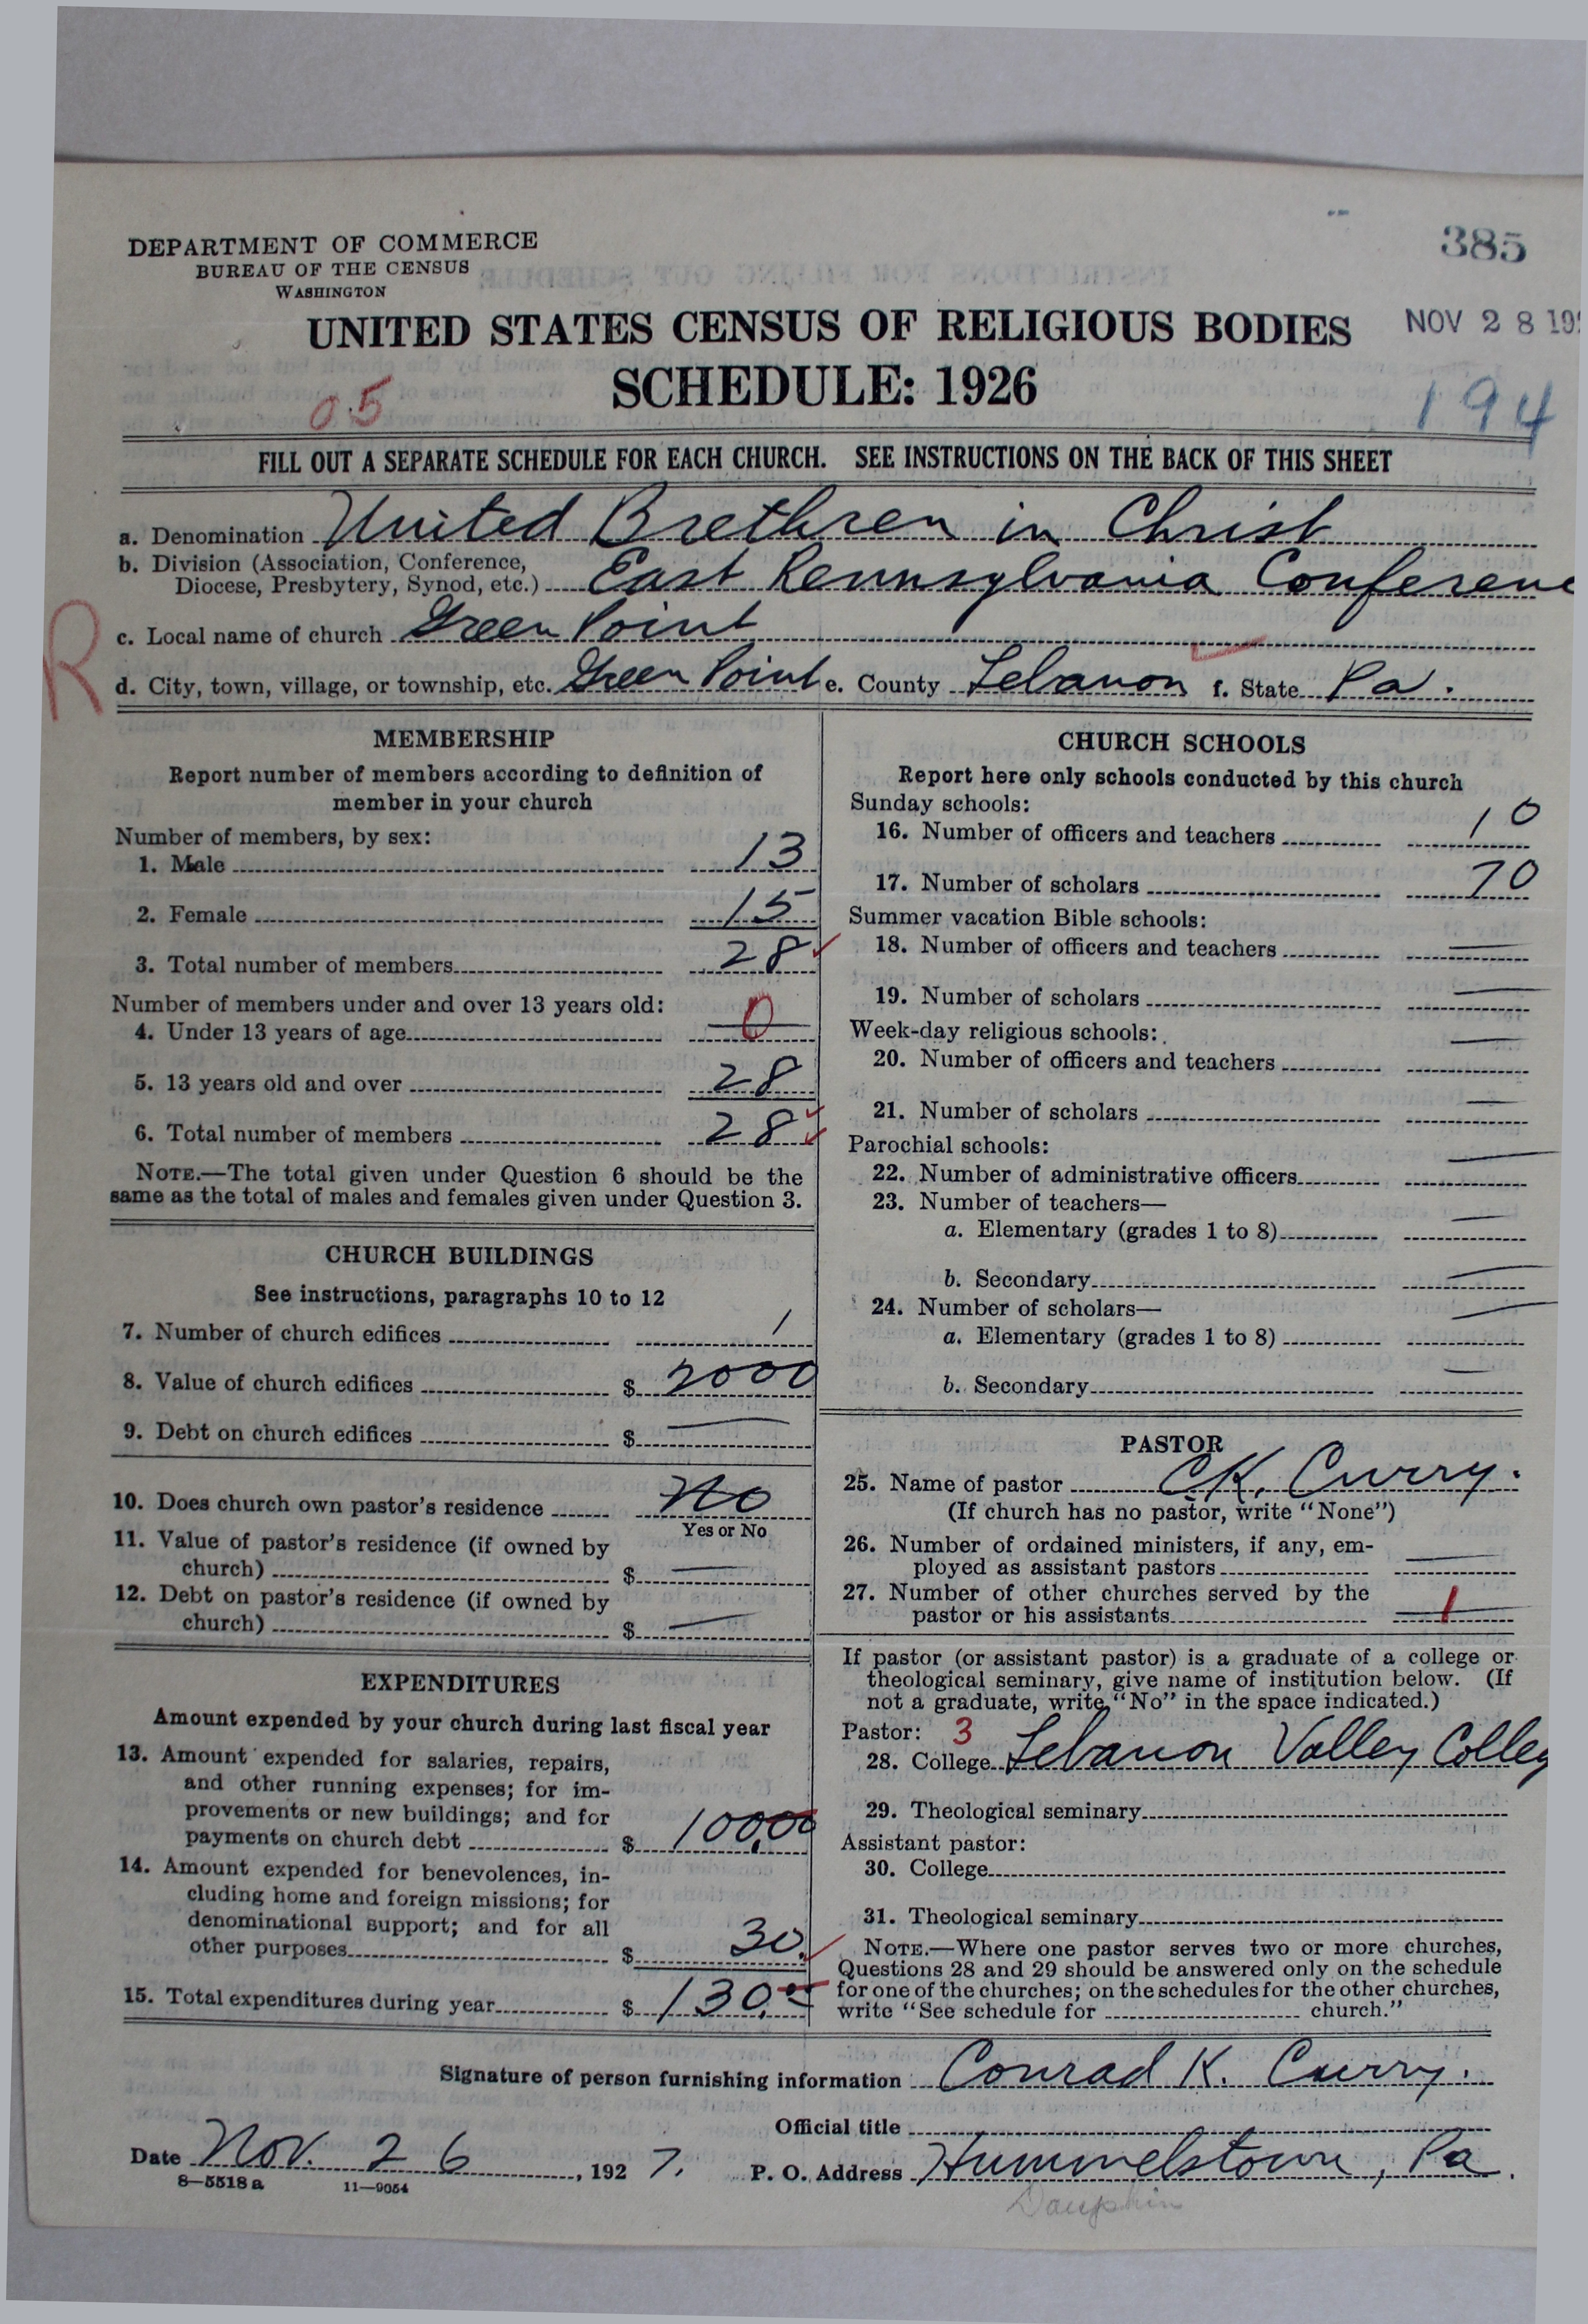 385
DEPARTMENT OF COMMERCE
BUREAU OF THE CENSUS
WASHINGTON
UNITED STATES CENSUS OF RELIGIOUS BODIES
NOV 28 19
SCHEDULE: 1926
05
194
FILL OUT A SEPARATE SCHEDULE FOR EACH CHURCH. SEE INSTRUCTIONS ON THE BACK OF THIS SHEET
a. Denomination United Brethren in Christ
b. Division (Association, Conference,
Diocese, Presbytery, Synod, etc.) East Pennsylvania Conferenc
R
c. Local name of church Green Point
d. City, town, village, or township, etc. Green Point e. County Lebanon f. State Pa.
MEMBERSHIP
Report number of members according to definition of
member in your church
Number of members, by sex:
1. Male 13
2. Female 15
3. Total number of members 28
Number of members under and over 13 years old:
4. Under 13 years of age 0
5. 13 years old and over 28
6. Total number of members 28
NOTE.—The total given under Question 6 should be the
same as the total of males and females given under Question 3.
CHURCH BUILDINGS
See instructions, paragraphs 10 to 12
7. Number of church edifices 1
8. Value of church edifices $ 2000
9. Debt on church edifices $ —
10. Does church own pastor's residence No
Yes or No
11. Value of pastor's residence (if owned by
church) $ —
12. Debt on pastor's residence (if owned by
church) $ —
EXPENDITURES
Amount expended by your church during last fiscal year
13. Amount expended for salaries, repairs,
and other running expenses; for im-
provements or new buildings; and for
payments on church debt $ 100.00
14. Amount expended for benevolences, in-
cluding home and foreign missions; for
denominational support; and for all
other purposes $ 30.
15. Total expenditures during year $ 130.00
CHURCH SCHOOLS
Report here only schools conducted by this church
Sunday schools:
16. Number of officers and teachers 10
17. Number of scholars 70
Summer vacation Bible schools:
18. Number of officers and teachers —
19. Number of scholars —
Week-day religious schools:
20. Number of officers and teachers —
21. Number of scholars —
Parochial schools:
22. Number of administrative officers —
23. Number of teachers—
a. Elementary (grades 1 to 8) —
b. Secondary —
24. Number of scholars—
a. Elementary (grades 1 to 8) —
b. Secondary —
PASTOR
25. Name of pastor C.K. Curry.
(If church has no pastor, write "None")
26. Number of ordained ministers, if any, em-
ployed as assistant pastors —
27. Number of other churches served by the
pastor or his assistants 1
If pastor (or assistant pastor) is a graduate of a college or
theological seminary, give name of institution below. (If
not a graduate, write "No" in the space indicated.)
Pastor: 3
28. College Lebanon Valley Colleg
29. Theological seminary
Assistant pastor:
30. College
31. Theological seminary
NOTE.—Where one pastor serves two or more churches,
Questions 28 and 29 should be answered only on the schedule
for one of the churches; on the schedules for the other churches,
write "See schedule for church."
Signature of person furnishing information Conrad K. Curry.
Official title
Date Nov. 26, 1927. P. O. Address Hummelstown, Pa.
8—5518 a 11—9054
Dauphin